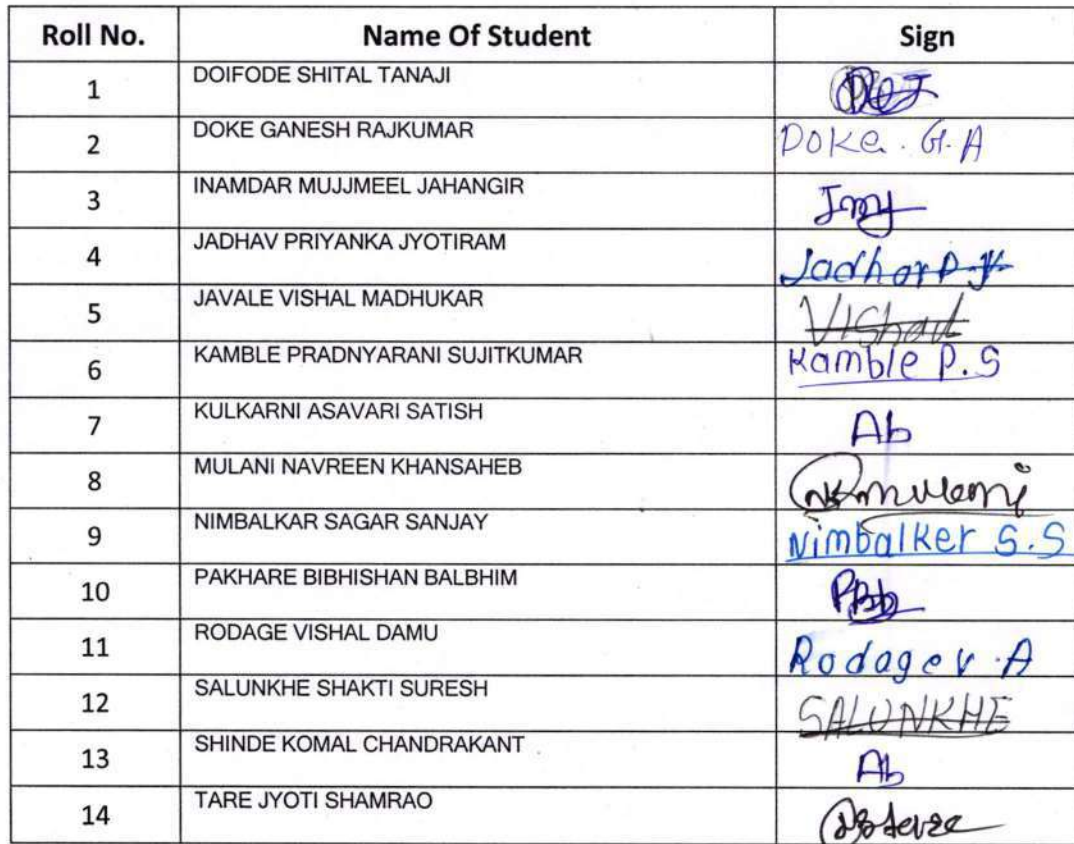 Roll No. Name Of Student Sign
1 DOIFODE SHITAL TANAJI
2 DOKE GANESH RAJKUMAR Doke. G. A
3 INAMDAR MUJJMEEL JAHANGIR
4 JADHAV PRIYANKA JYOTIRAM Jadhav P.J.
5 JAVALE VISHAL MADHUKAR Vishal
6 KAMBLE PRADNYARANI SUJITKUMAR Kamble P.S
7 KULKARNI ASAVARI SATISH Ab
8 MULANI NAVREEN KHANSAHEB
9 NIMBALKAR SAGAR SANJAY Nimbalker S.S
10 PAKHARE BIBHISHAN BALBHIM
11 RODAGE VISHAL DAMU Rodage v.A
12 SALUNKHE SHAKTI SURESH SALUNKHE
13 SHINDE KOMAL CHANDRAKANT Ab
14 TARE JYOTI SHAMRAO